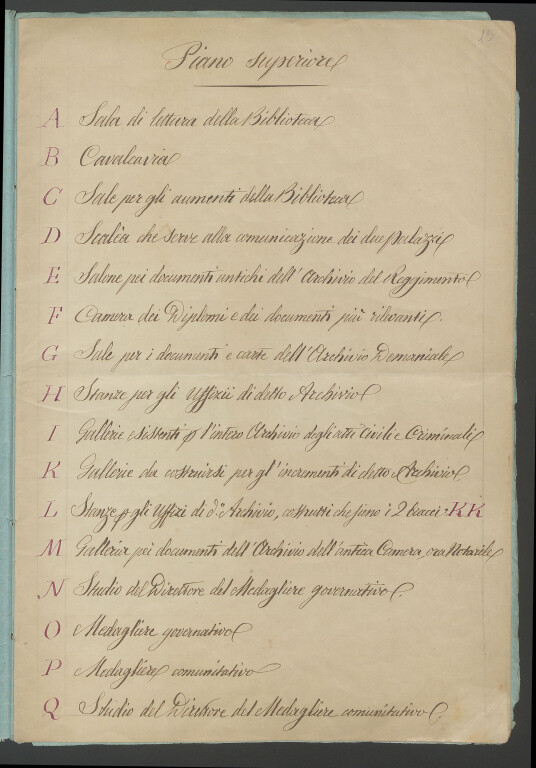 19
Piano superiore
A Sala di lettura della Biblioteca
B Cavalcavia
C Sale per gli aumenti della Biblioteca
D Scalèa che serve alla comunicazione dei due Palazzi
E Salone pei documenti antichi dell' Archivio del Reggimento
F Camera dei Diplomi e dei documenti più rilevanti.
G Sale per i documenti e carte dell' Archivio Demaniale
H Stanze per gli Uffizii di detto Archivio
I Gallerie esistenti p l'intero Archivio degli atti Civili e Criminali
K Gallerie da costruirsi per gl'incrementi di detto Archivio
L Stanze p gli Uffizi di d.º Archivio, costrutti che sieno i 2 bracci KK
M Galleria pei documenti dell' Archivio dell'antica Camera, ora Notarile
N Studio del Direttore del Medagliere governativo.
O Medagliere governativo
P Medagliere comunitativo
Q Studio del Direttore del Medagliere comunitativo.